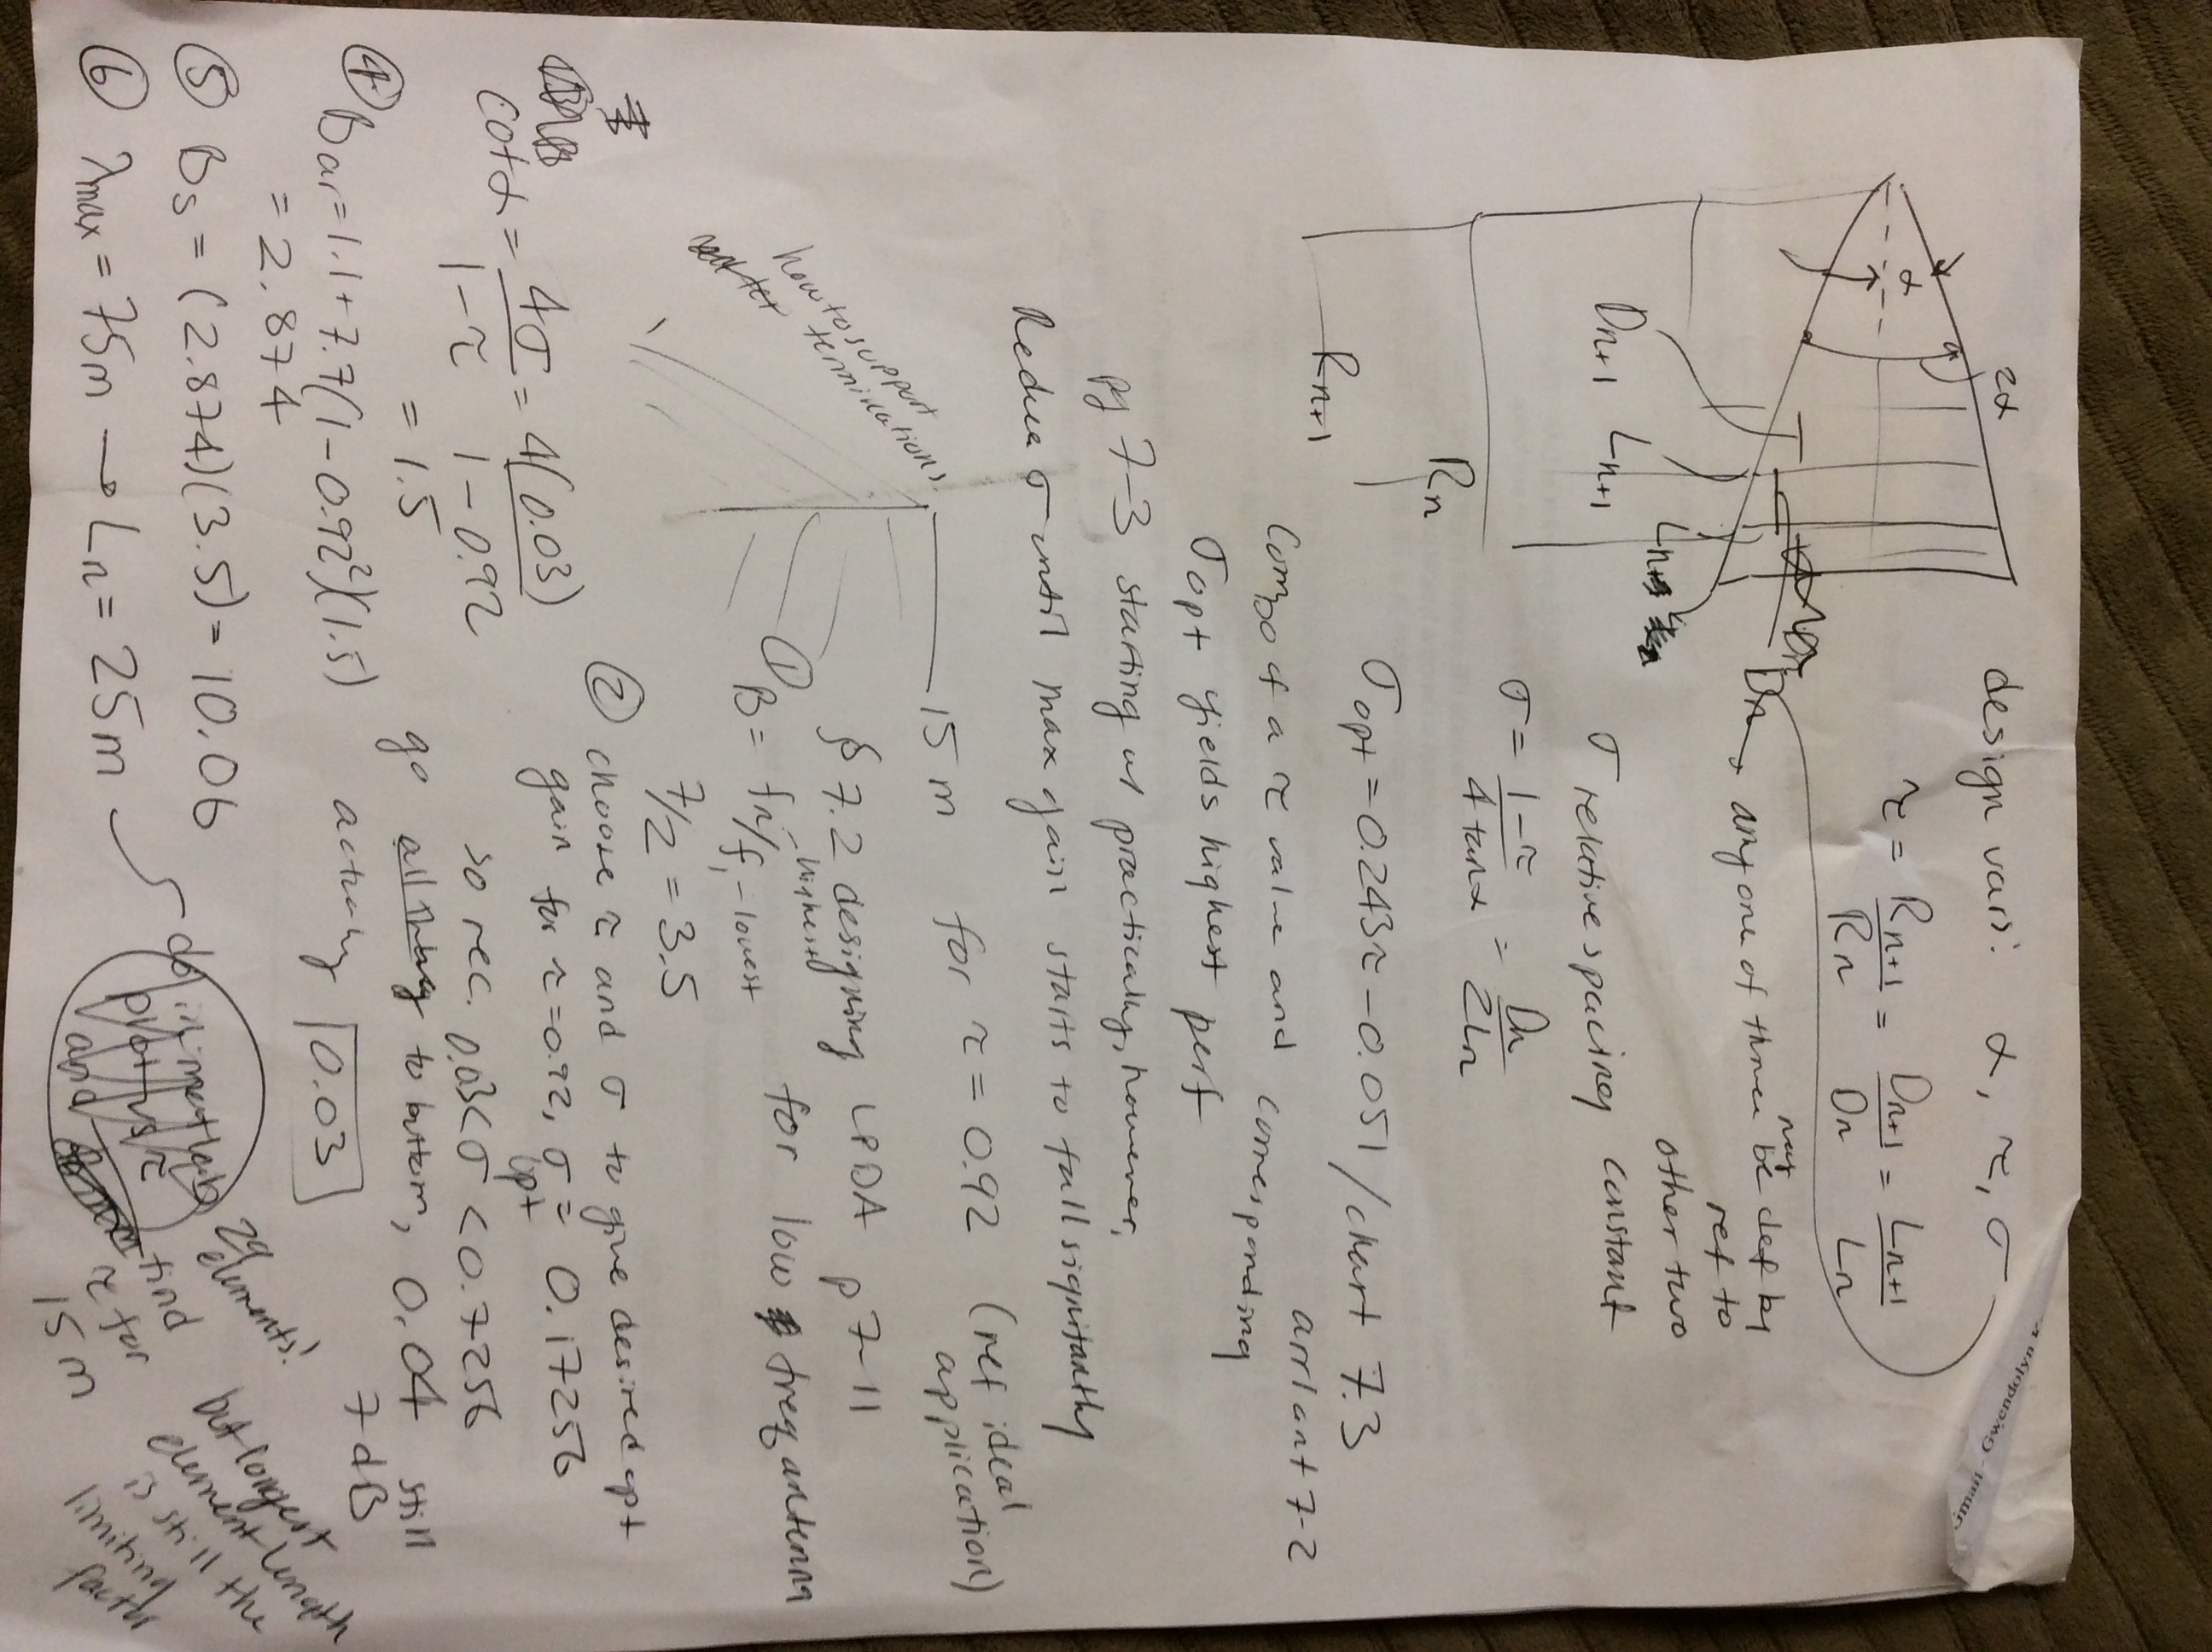 Gmail - Gwendolyn
design vars: α, τ, σ
2α
α
τ = Rn+1/Rn = Dn+1/Dn = Ln+1/Ln
Dn
→ any one of three may be def by
ref to
other two
Dn+1
Ln+1
Rn
Rn+1
σ relative spacing constant
σ = 1-τ/4tanα = Dn/2Ln
σopt = 0.243τ - 0.051 / chart 7.3
arrl ant 7-2
Combo of a τ value and corresponding
σopt yields highest perf
pg 7-3 starting w/ practically, however,
Reduce σ until max gain starts to fall significantly
15 m for τ = 0.92 (ref ideal
application)
how to support
terminations?
§ 7.2 designing LPDA p 7-11
① B = fn/f1 - lowest
highest
for low freq antenna
7/2 = 3.5
② choose τ and σ to give desired opt
gain for τ = 0.92, σopt = 0.17256
so rec. 0.03 < σ < 0.7256
go all the way to bottom, 0.04 still
7 dB
actually 0.03
cotα = 4σ/1-τ = 4(0.03)/1-0.92
= 1.5
④ Bar = 1.1 + 7.7(1-0.92²)(1.5)
= 2.874
⑤ Bs = (2.874)(3.5) = 10.06
⑥ λmax = 75m → Ln = 25m
do in matlab
plot τ vs
and
find
τ for
15 m
29
elements!
but longest
element length
is still the
limiting
factor